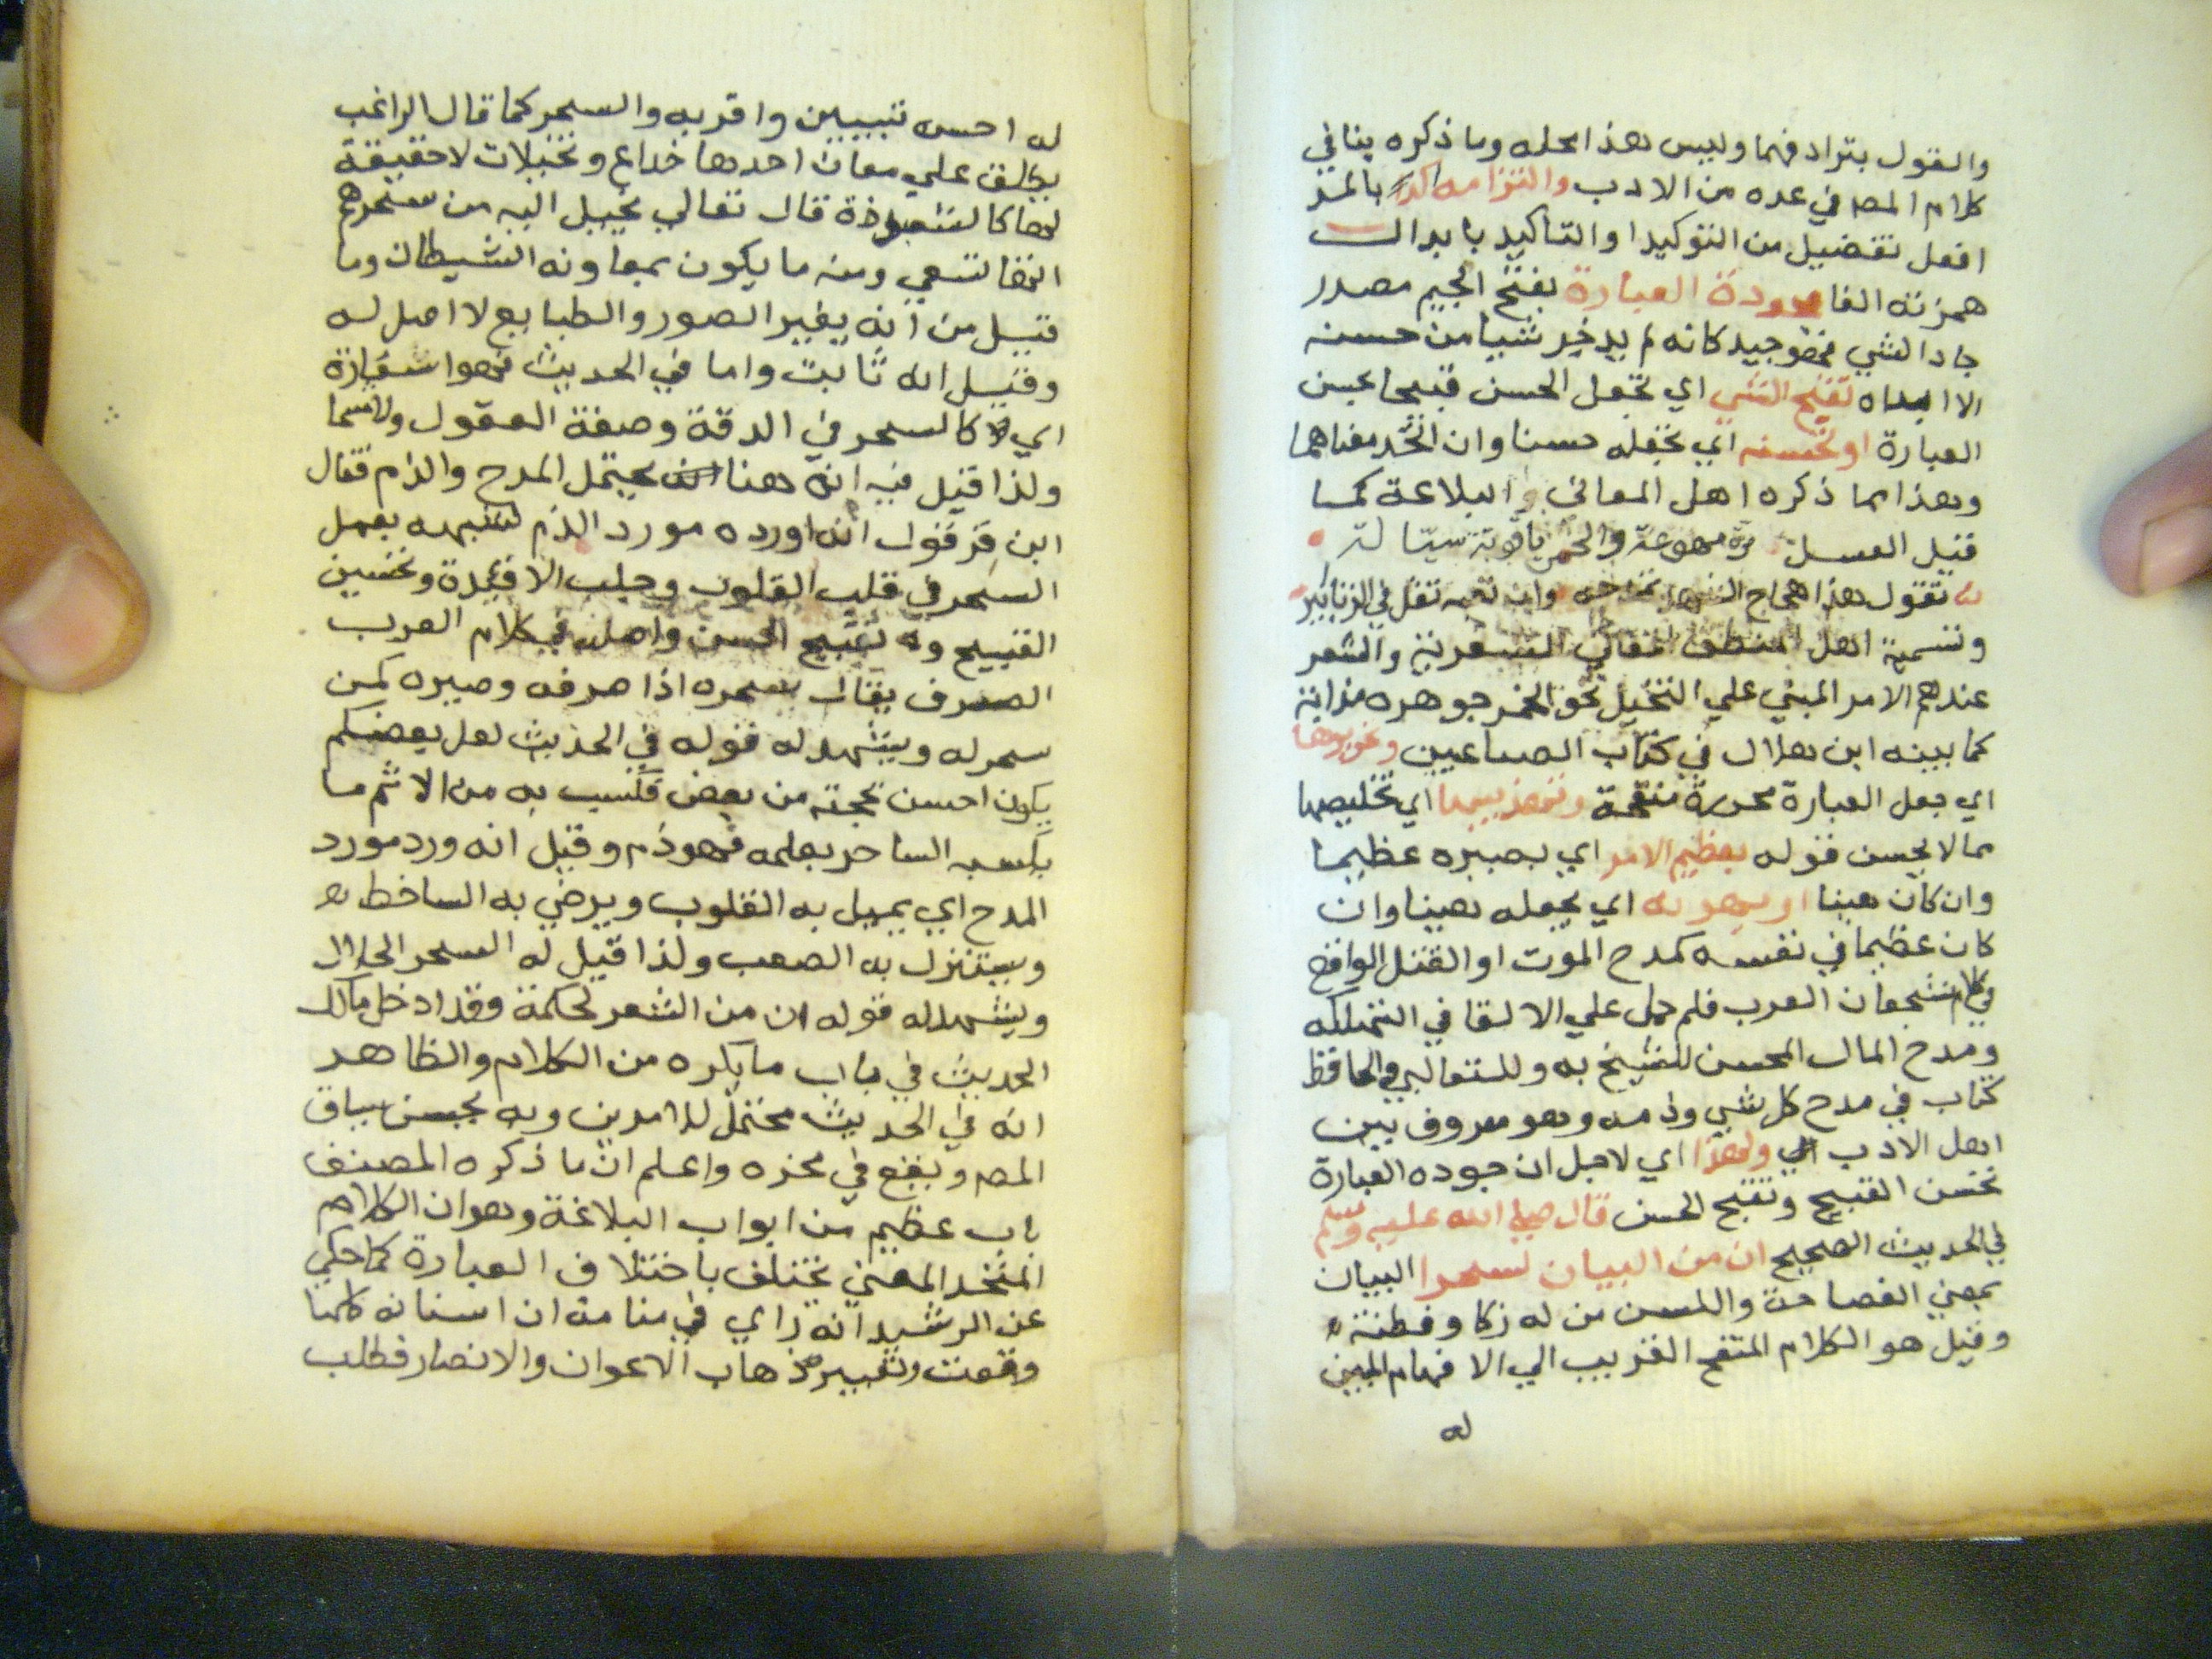 والقول بترادفهما وليس هذا محله وما ذكره ينافي
كلام المصه في عده من الادب والتزامه اكد بالمد
افعل تفضيل من التوكيد او التاكيد بابدال
همزته الفا جودة العبارة بفتح الجيم مصدر
جاد الشي فهو جيد كانه لم يدخر شيا من حسنه
الا ابداه تقبح الشي اي تجعل الحسن قبيحا بحسن
العبارة او تحسنه اي تجعله حسنا وان اتحد معناهما
وهذا مما ذكره اهل المعاني والبلاعة كما
قيل العسل مرة مهوعة والخمر ياقوتة سيالة
تقول هذا مجاج النحل تمدحه وان تعبه تقل في الزنابير
وتسميه اهل المنطق المعاني الشعرية والشعر
عندهم الامر المبني علي التخيل نحو الخمر جوهره مذابة
كما بينه ابن هلال في كتاب الصناعيين وتحريرها
اي جعل العبارة محررة منقحة وتهذيبها اي تخليصها
مما لا يحسن قوله يعظيم الامر اي بصيره عظيما
وان كان هينا او يهونه اي يجعله هينا وان
كان عظيما في نفسه كمدح الموت او القتل الواقع
في كلام شجعان العرب فلم حمل علي الالقا في التهلكه
ومدح المال المحسن للشيخ به وللثعالبي والحافظ
كتاب في مدح كل شي وذمه وهو معروف بين
اهل الادب ولهذا اي لاجل ان جوده العبارة
تحسن القبيح وتقبح الحسن قال صلي الله عليه وسلم
في الحديث الصحيح ان من البيان لسحرا البيان
بمعني الفصاحة واللسن من له زكا وفطنة
وقيل هو الكلام المتقح القريب الي الافهام المبين
له
له احسن تبيين واقربه والسحر كما قال الراغب
يطلق علي معان احدها خداع وتخيلات لا حقيقة
لها كالشعوذة قال تعالي يخيل اليه من سحرهم
انها تسعي ومنه ما يكون بمعاونه الشيطان وما
قيل من انه يغير الصور والطبايع لا اصل له
وقيل انه ثابت واما في الحديث فهو استعارة
اي كالسحر في الدقة وصفة العقول
ولذا قيل فيه انه هنا يحتمل المدح والذم فقال
ابن قرقول انه اورده مورد الذم لتشبيهه بعمل
السحر في قلب القلوب وجلب الافئدة وتحسين
القبيح و تقبيح الحسن واصله في كلام العرب
الصرف يقال سحره اذا صرفه وصيره كمن
سحر له ويشهد له قوله في الحديث لعل بعضكم
يكون احسن بحجته من بعض فكسب به من الاثم ما
يكسبه الساحر بعلمه فهو ذم وقيل انه ورد مورد
المدح اي يميل به القلوب ويرضي به الساخط
ويستنزل به الصعب ولذا قيل له السحر الحلال
ويشهد له قوله ان من الشعر لحكمة وقد ادخل مالك
الحديث في باب ما يكره من الكلام والظاهر
انه في الحديث محتمل للامرين وبه يحسن سياق
المصه ويقع في محزه واعلم ان ما ذكره المصنف
باب عظيم من ابواب البلاغة وهو ان الكلام
المتحد المعني تختلف باختلاف العبارة كما حكي
عن الرشيد انه راي في منامه ان اسنانه كلها
وقعت وتعبير ذهاب الاعوان والانصار فطلب